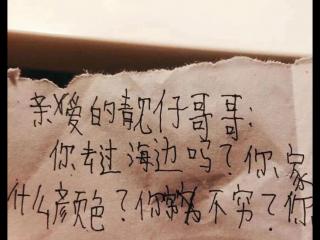 亲爱的靓仔哥哥:
你去过海边吗?你家
什么颜色?你家穷不穷?你